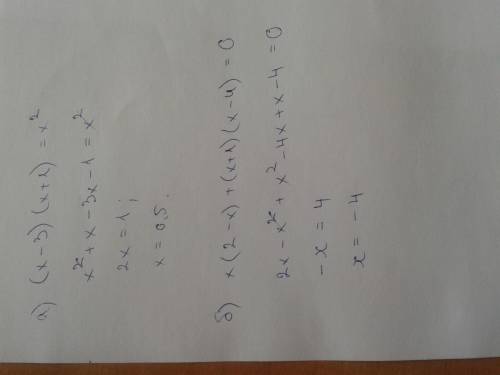 а) (x-3)(x+1) = x²
x² + x - 3x - 1 = x²
2x = 1;
x = 0,5.
б) x(2-x) + (x+1)(x-4) = 0
2x - x² + x² - 4x + x - 4 = 0
-x = 4
x = -4